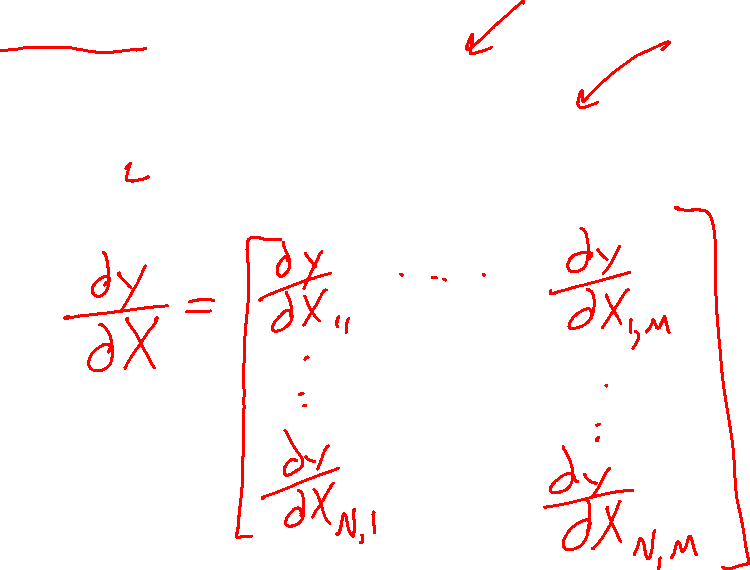 ∂y/∂X = [ ∂y/∂X₁₁ ... ∂y/∂X₁,M
⋮ ⋮
∂y/∂X_N,1 ∂y/∂X_N,M ]